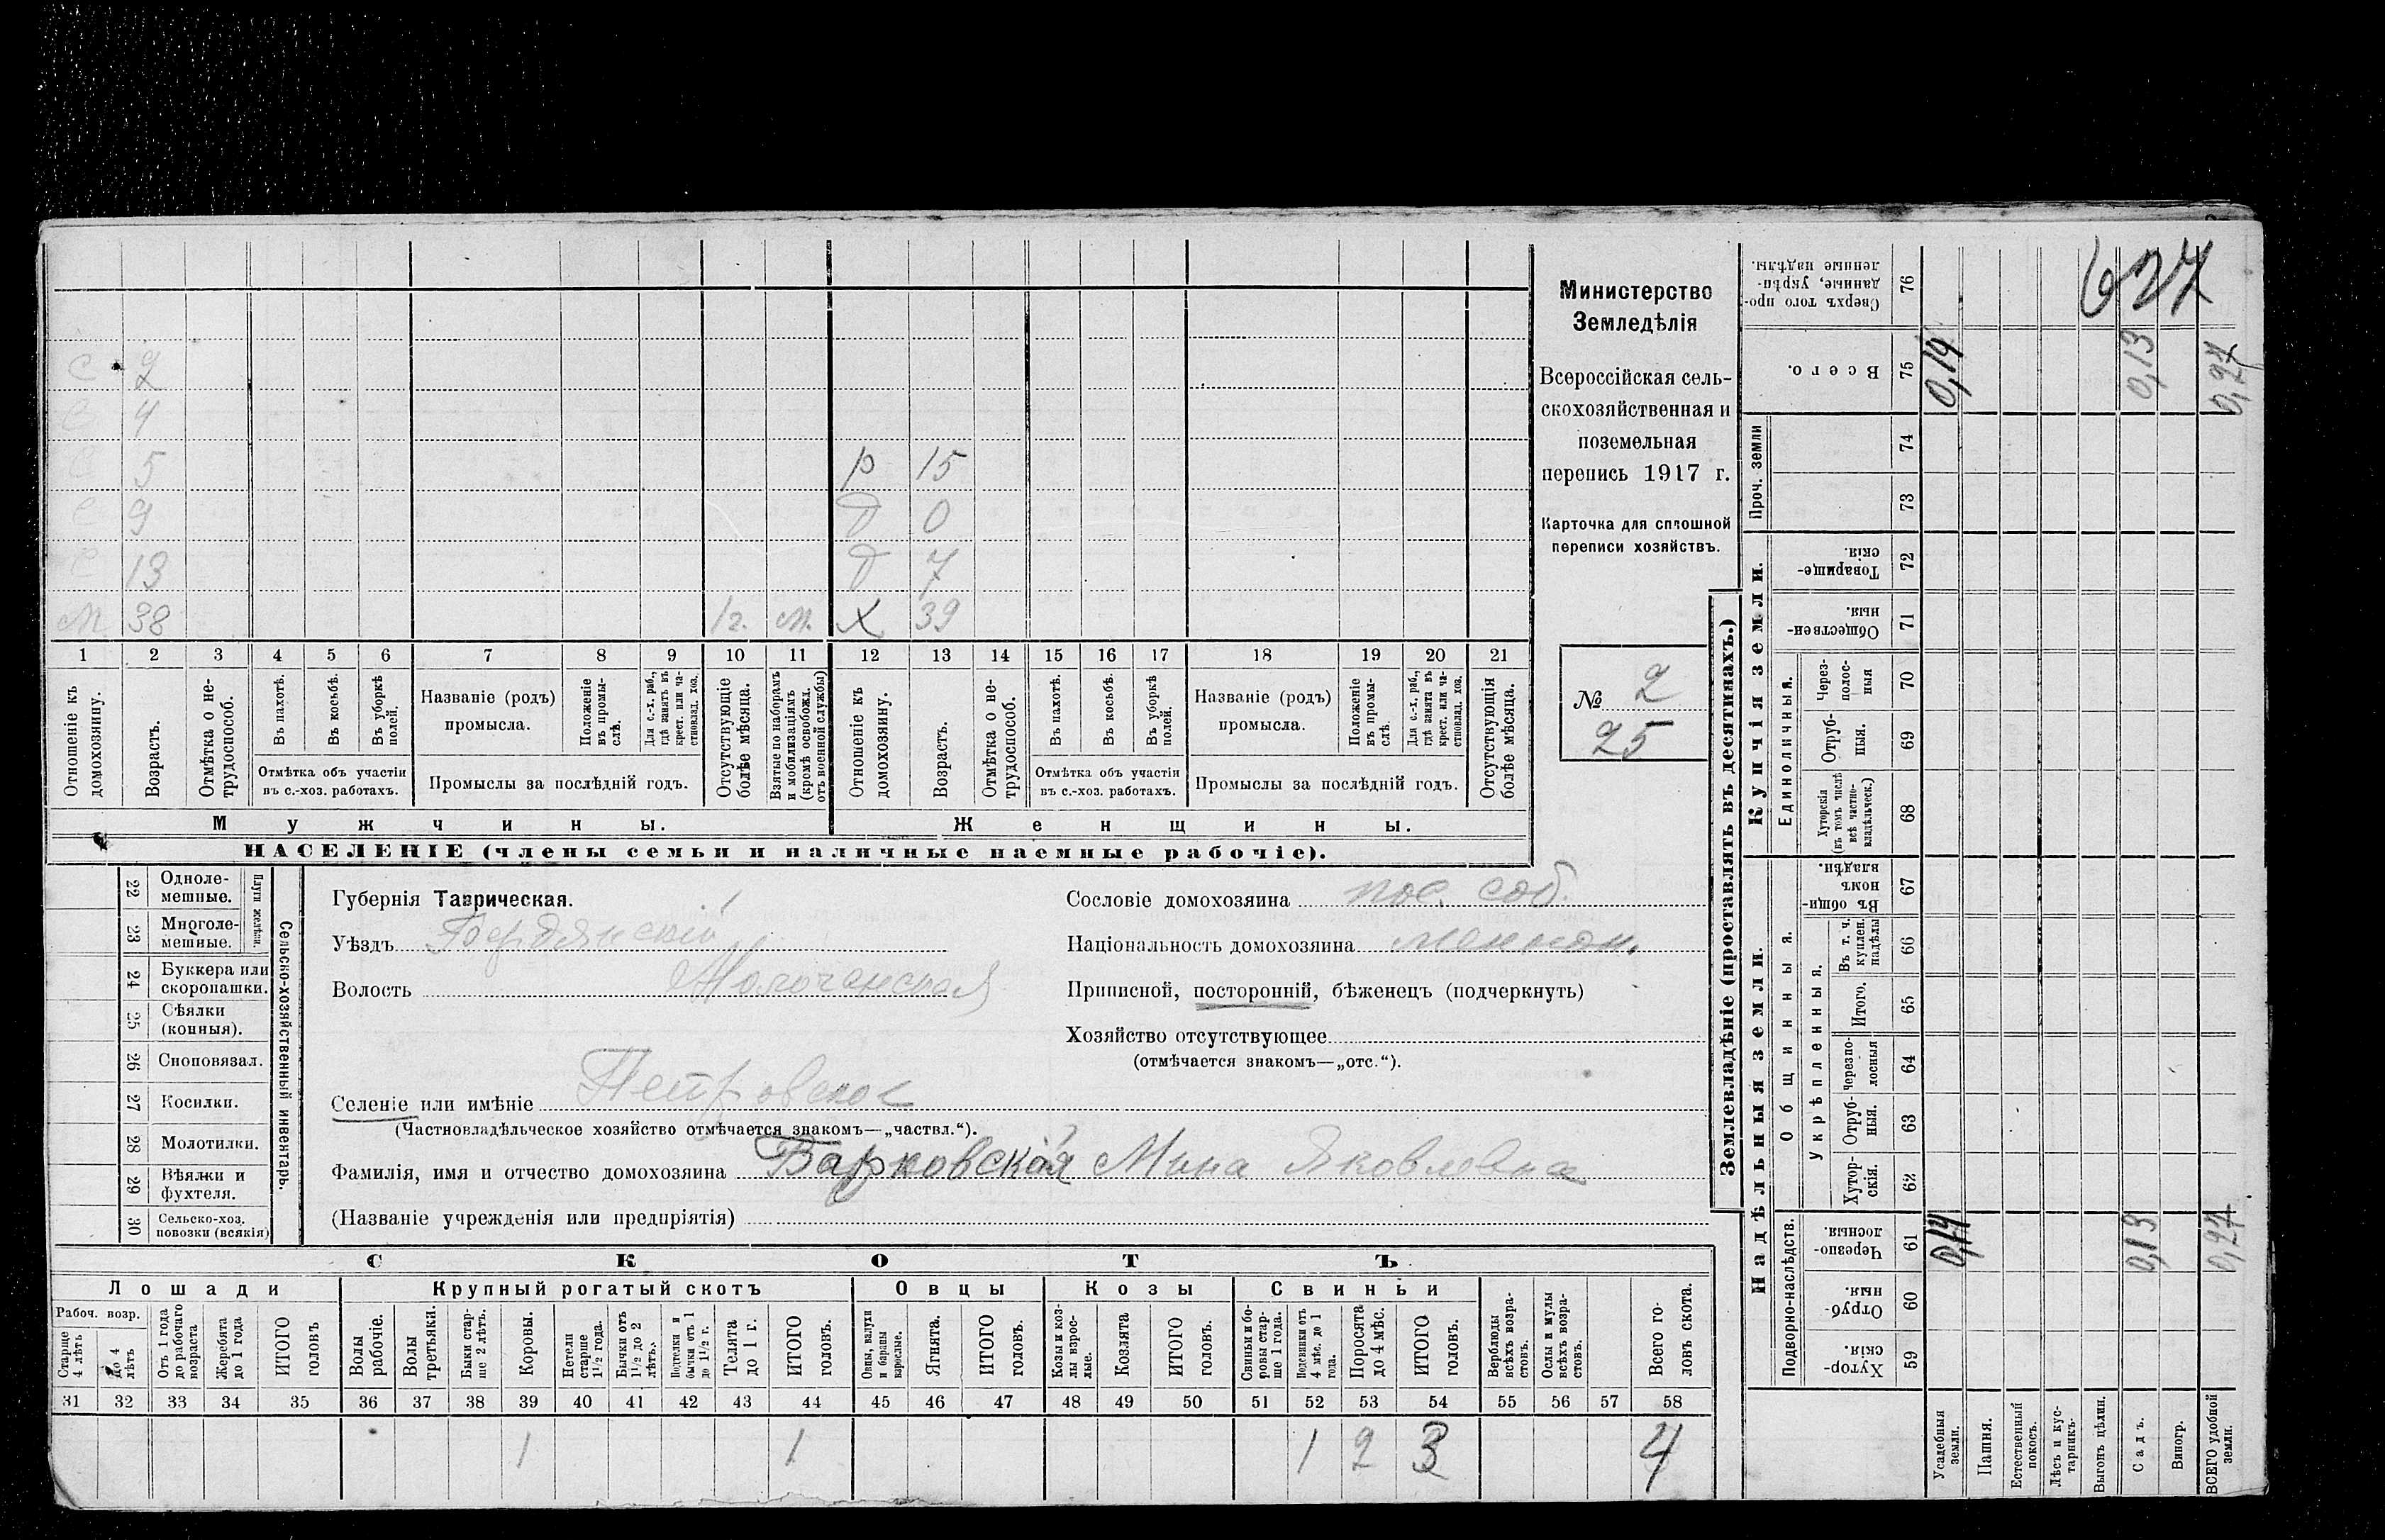 С 2
С 4
С 5 р 15
С 9 д 0
С 13 д 7
М 38 1г. м. Х 39
1 2 3 4 5 6 7 8 9 10 11 12 13 14 15 16 17 18 19 20 21
Отношеніе къ домохозяину.
Возрастъ.
Отмѣтка о не-
трудоспособ.
Въ пахотѣ.
Въ косьбѣ.
Въ уборкѣ
полей.
Отмѣтка объ участіи
въ с.-хоз. работахъ.
Названіе (родъ)
промысла.
Положеніе
въ промы-
слѣ.
Для с.-х. раб.,
гдѣ занятъ въ
крест. или ча-
стновлад. хоз.
Промыслы за послѣдній годъ.
Отсутствующіе
болѣе мѣсяца.
Взятые по наборамъ
и мобилизаціямъ
(кромѣ освобожд.
отъ военной службы)
Отношеніе къ
домохозяину.
Возрастъ.
Отмѣтка о не-
трудоспособ.
Въ пахотѣ.
Въ косьбѣ.
Въ уборкѣ
полей.
Отмѣтка объ участіи
въ с.-хоз. работахъ.
Названіе (родъ)
промысла.
Положеніе
въ промы-
слѣ.
Для с.-х. раб.,
гдѣ занята въ
крест. или ча-
стновлад. хоз.
Промыслы за послѣдній годъ.
Отсутствующія
болѣе мѣсяца.
Мужчины. Женщины.
НАСЕЛЕНІЕ (члены семьи и наличные наемные рабочіе).
Министерство
Земледѣлія
Всероссійская сель-
скохозяйственная и
поземельная
перепись 1917 г.
Карточка для сплошной
переписи хозяйствъ.
№ 2
25
22 Одноле-
мешные.
23 Многоле-
мешные.
Плуги желѣзн.
24 Буккера или
скоропашки.
25 Сѣялки
(конныя).
26 Сноповязал.
27 Косилки.
28 Молотилки.
29 Вѣялки и
фухтеля.
30 Сельско-хоз.
повозки (всякія)
Сельско-хозяйственный инвентарь.
Губернія Таврическая.
Уѣздъ Бердянскій
Волость Молочанская
Селеніе или имѣніе Петровское
(Частновладѣльческое хозяйство отмѣчается знакомъ—„частвл.“).
Фамилія, имя и отчество домохозяина Барковская Мина Яковлевна
(Названіе учрежденія или предпріятія)
Сословіе домохозяина пос. соб.
Національность домохозяина меннон.
Приписной, посторонній, бѣженецъ (подчеркнуть)
Хозяйство отсутствующее
(отмѣчается знакомъ—„отс.“).
СКОТЪ
Лошади Крупный рогатый скотъ Овцы Козы Свиньи
Рабоч. возр.
Старше
4 лѣтъ
до 4
лѣтъ
Отъ 1 года
до рабочаго
возраста
Жеребята
до 1 года
ИТОГО
головъ
Волы
рабочіе.
Волы
третьяки.
Быки стар-
ше 2 лѣтъ.
Коровы.
Нетели
старше
1½ года.
Бычки отъ
1½ до 2
лѣтъ.
Подтелки и
бычки отъ 1
до 1½ г.
Телята
до 1 г.
ИТОГО
головъ.
Овцы, валухи
и бараны
взрослые.
Ягнята.
ИТОГО
головъ.
Козы и коз-
лы взрос-
лые.
Козлята
ИТОГО
головъ.
Свиньи и бо-
ровы стар-
ше 1 года.
Подсвинки отъ
4 мѣс. до 1
года.
Поросята
до 4 мѣс.
ИТОГО
головъ.
Верблюды
всѣхъ возра-
стовъ.
Ослы и мулы
всѣхъ возра-
стовъ.
Всего го-
ловъ скота.
31 32 33 34 35 36 37 38 39 40 41 42 43 44 45 46 47 48 49 50 51 52 53 54 55 56 57 58
1 1 1 2 3 4
Землевладѣніе (проставлять въ десятинахъ.)
Надѣльныя земли. Купчія земли. Проч. земли
Подворно-наслѣдств. Общинныя. Единоличныя.
Укрѣпленныя.
Сверхъ того про-
данные, укрѣп-
ленные надѣлы. 76
Всего. 75
74
73
Товарище-
скія. 72
Обществен-
ныя. 71
Через-
полос-
ныя 70
Отруб-
ныя. 69
Хуторскія
(въ томъ числѣ
всѣ частно-
владѣльческ.) 68
Въ общи-
номъ
владѣн. 67
Въ т. ч.
куплен.
надѣлы 66
Итого. 65
Черезпо-
лосныя 64
Отруб-
ныя. 63
Хутор-
скія. 62
Черезпо-
лосныя. 61
Отруб-
ныя. 60
Хутор-
скія. 59
627
0,14 0,13 0,27
0,14 0,13 0,27
Усадебныя
земли.
Пашня.
Естественный
покосъ.
Лѣсъ и кус-
тарникъ.
Выгонъ цѣлин.
Садъ.
Виногр.
ВСЕГО удобной
земли.